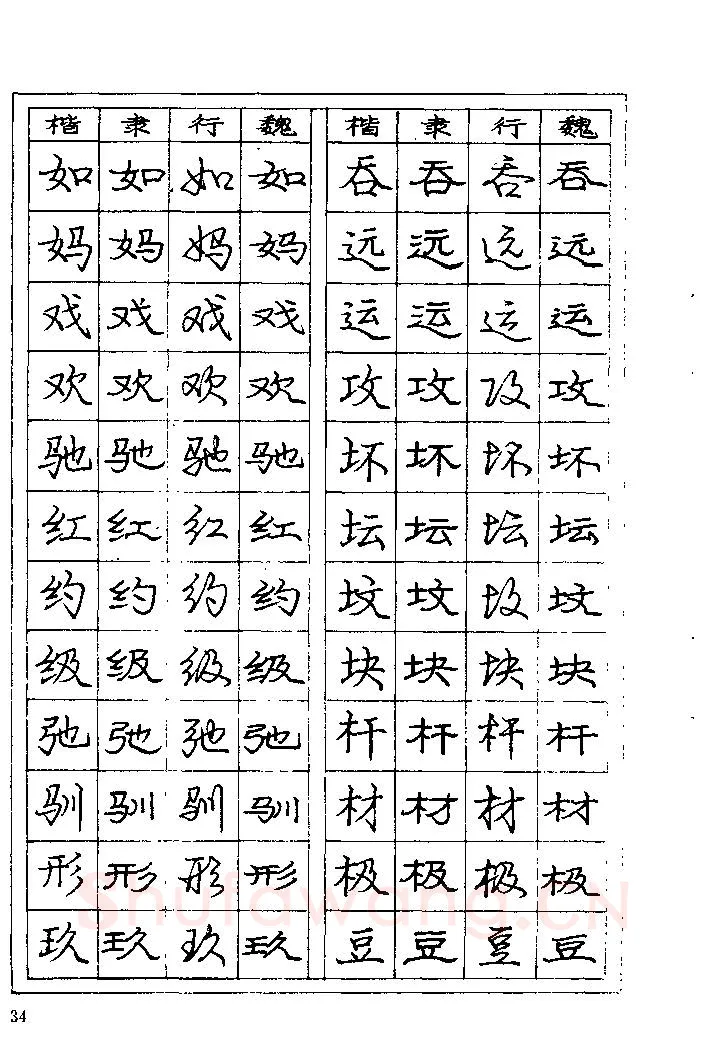 楷 隶 行 魏 楷 隶 行 魏
如 如 如 如 吞 吞 吞 吞
妈 妈 妈 妈 远 远 远 远
戏 戏 戏 戏 运 运 运 运
欢 欢 欢 欢 攻 攻 攻 攻
驰 驰 驰 驰 坏 坏 坏 坏
红 红 红 红 坛 坛 坛 坛
约 约 约 约 坟 坟 坟 坟
级 级 级 级 块 块 块 块
弛 弛 弛 弛 杆 杆 杆 杆
驯 驯 驯 驯 材 材 材 材
形 形 形 形 极 极 极 极
玖 玖 玖 玖 豆 豆 豆 豆
Shufawang.CN
34